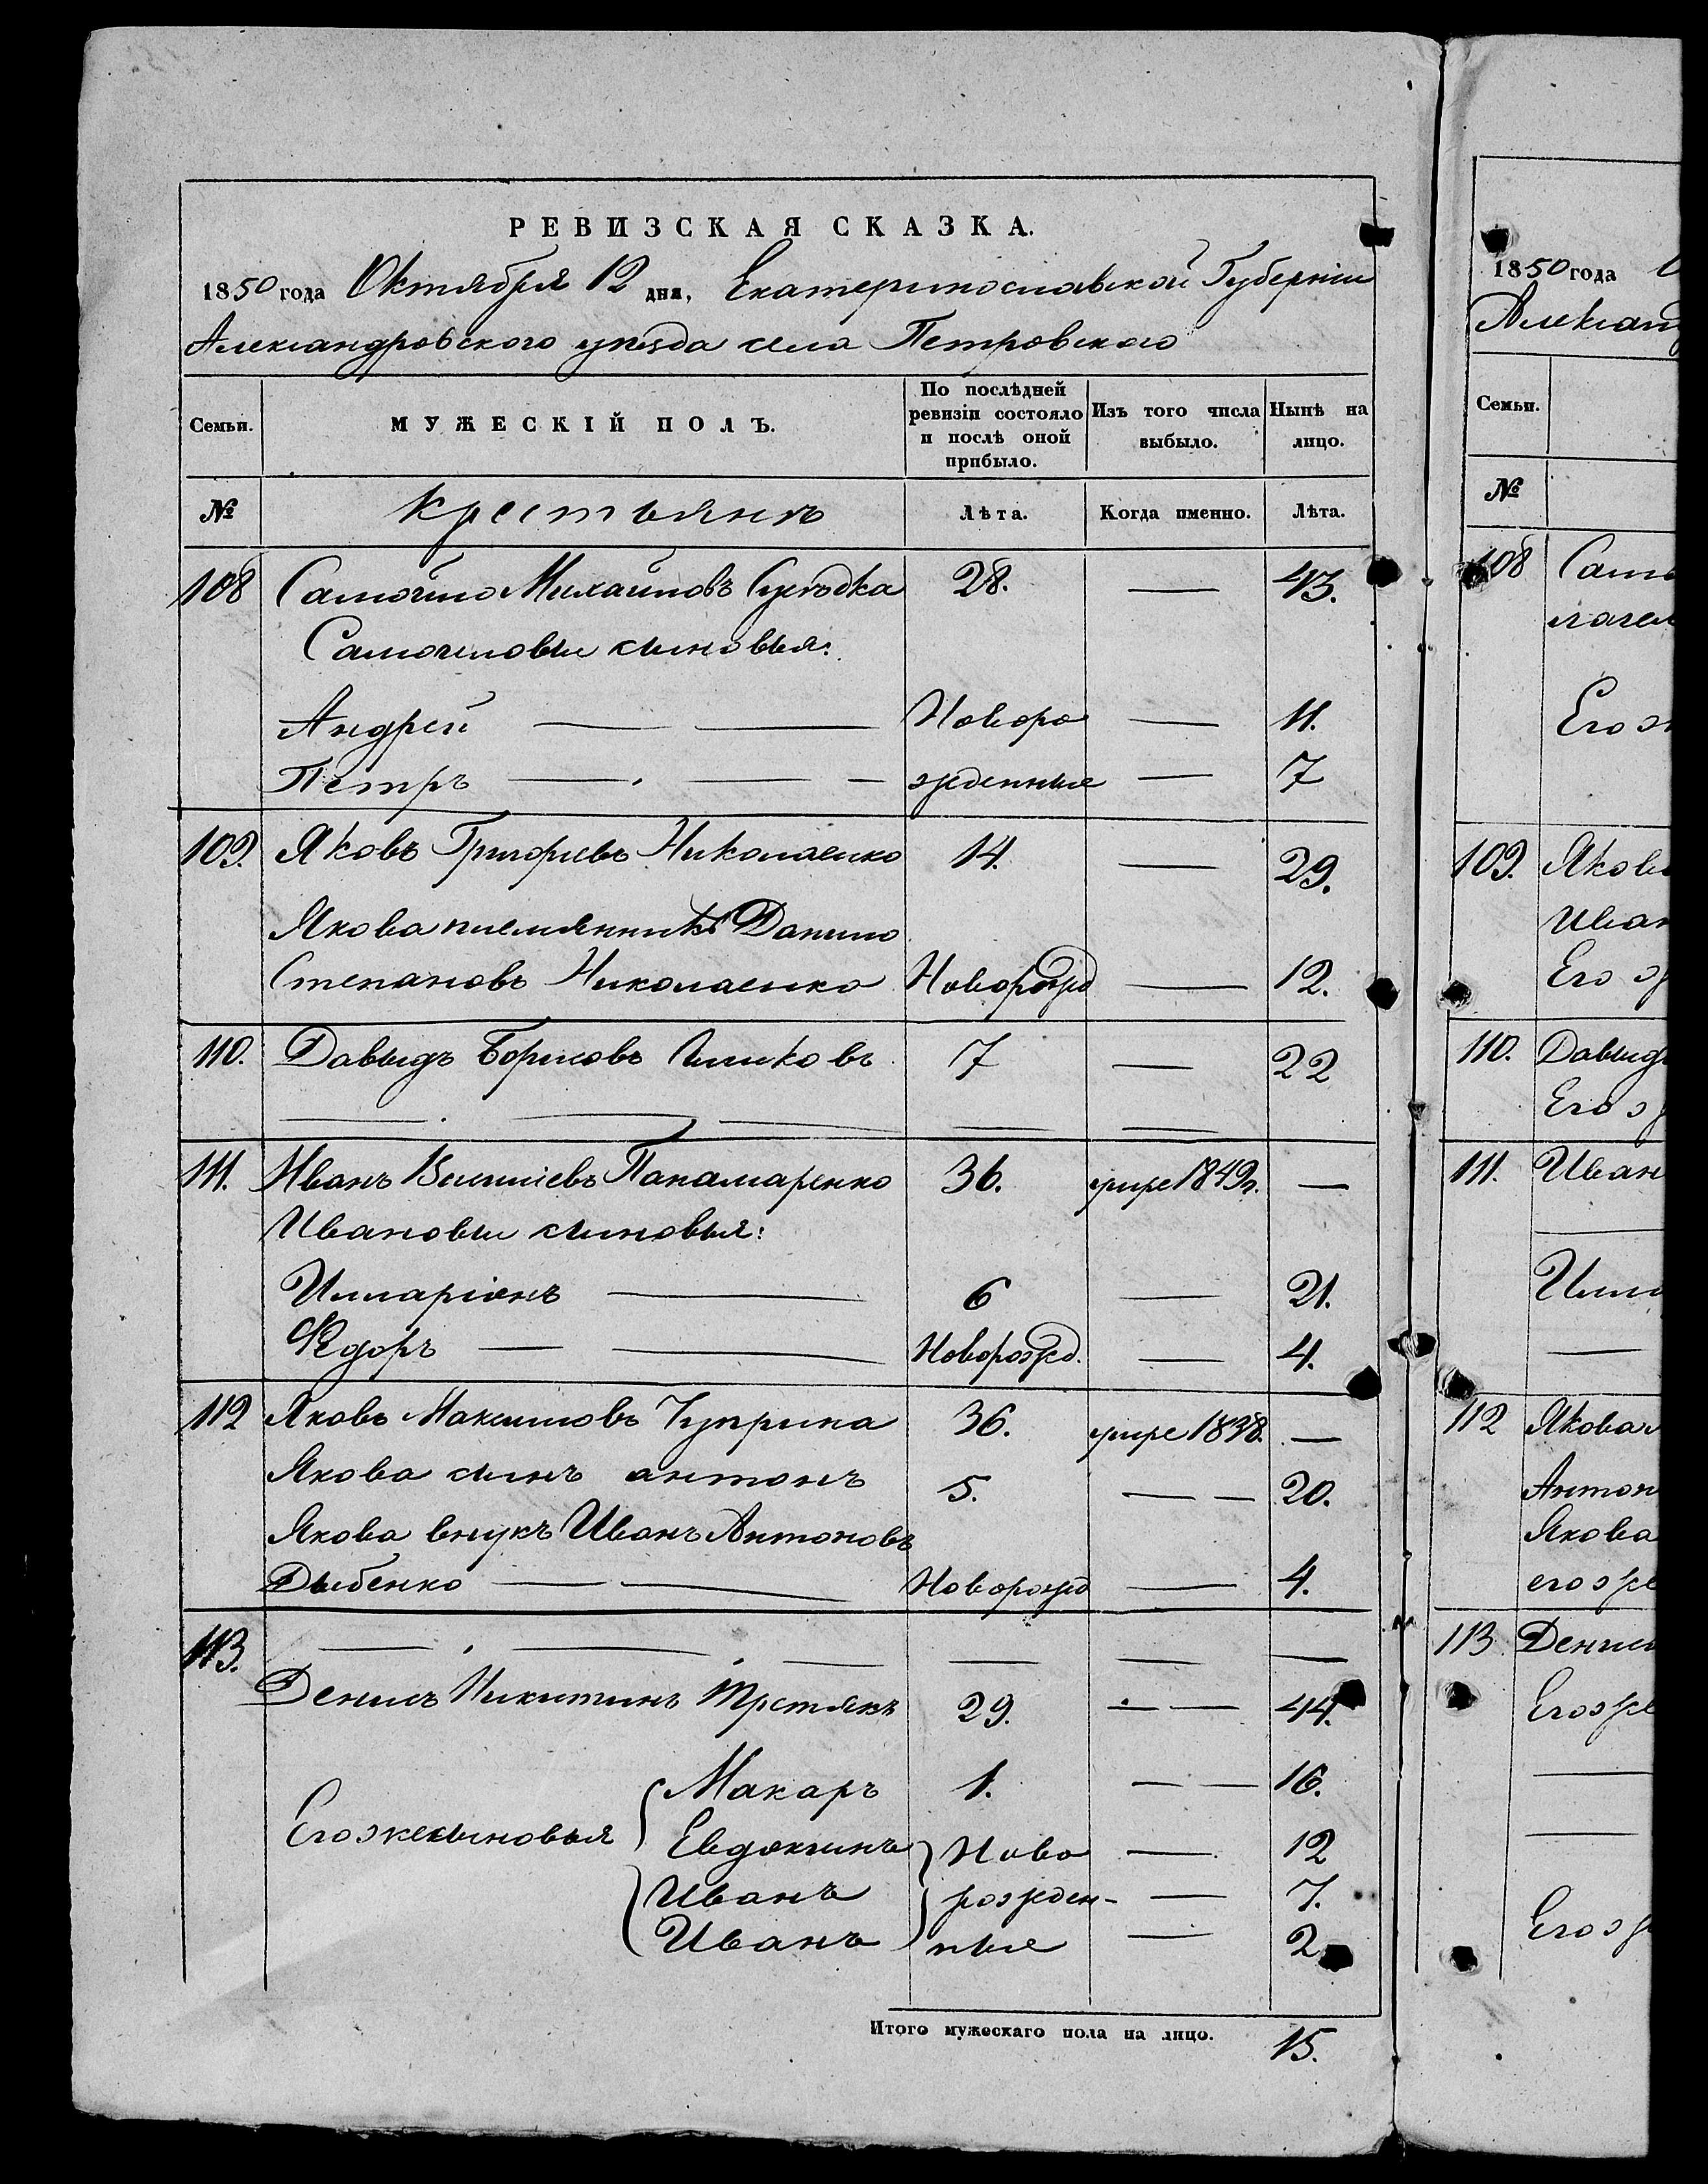 РЕВИЗСКАЯ СКАЗКА.
1850 года Октября 12 дня, Екатеринославской Губерніи
Александровского уѣзда села Петровского
Семьи.
МУЖЕСКІЙ ПОЛЪ.
По послѣдней ревизіи состояло и послѣ оной прибыло.
Изъ того числа выбыло.
Нынѣ на лицо.
№ крестьянъ Лѣта. Когда именно. Лѣта.
108 Самойло Михайловъ 28. — 43.
Самойловы сыновья:
Андрей — — Новоро — 11.
Петръ — — — жденные — 7
109. Яковъ Григорьевъ Николаенко 14. — 29.
Якова племянникъ Данило
Степановъ Николаенко Новорожд — 12.
110. Давыдъ Борисовъ 7 — 22
111. Иванъ Василіевъ Панамаренко 36. умре 1849г. —
Ивановы сыновья:
Илларіонъ — 6 — 21.
Федоръ — — Новорожд. — 4.
112 Яковъ Максимовъ Чуприна 36. умре 1838. —
Якова сынъ антонъ 5. — — 20.
Якова внукъ Иванъ Антоновъ
Дыбенко — — Новорожд — 4.
113. — — — — — —
Денисъ Никитинъ Третякъ 29. — — 44.
Макаръ 1. — — 16.
Его же сыновья Евдокимъ Ново — 12
Иванъ рожден- — 7.
Иванъ ные — 2
Итого мужескаго пола на лицо. 15.
1850 года
Александ
Семьи.
№
108 Само
Его ж
109. Яков
Иван
Его ж
110. Давыд
Его ж
111. Иван
Илла
112 Якова
Антон
Якова
его же
113 Денис
Его же
Его ж